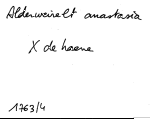 Aldenweirelt anastasia
X de hoene
1763/4